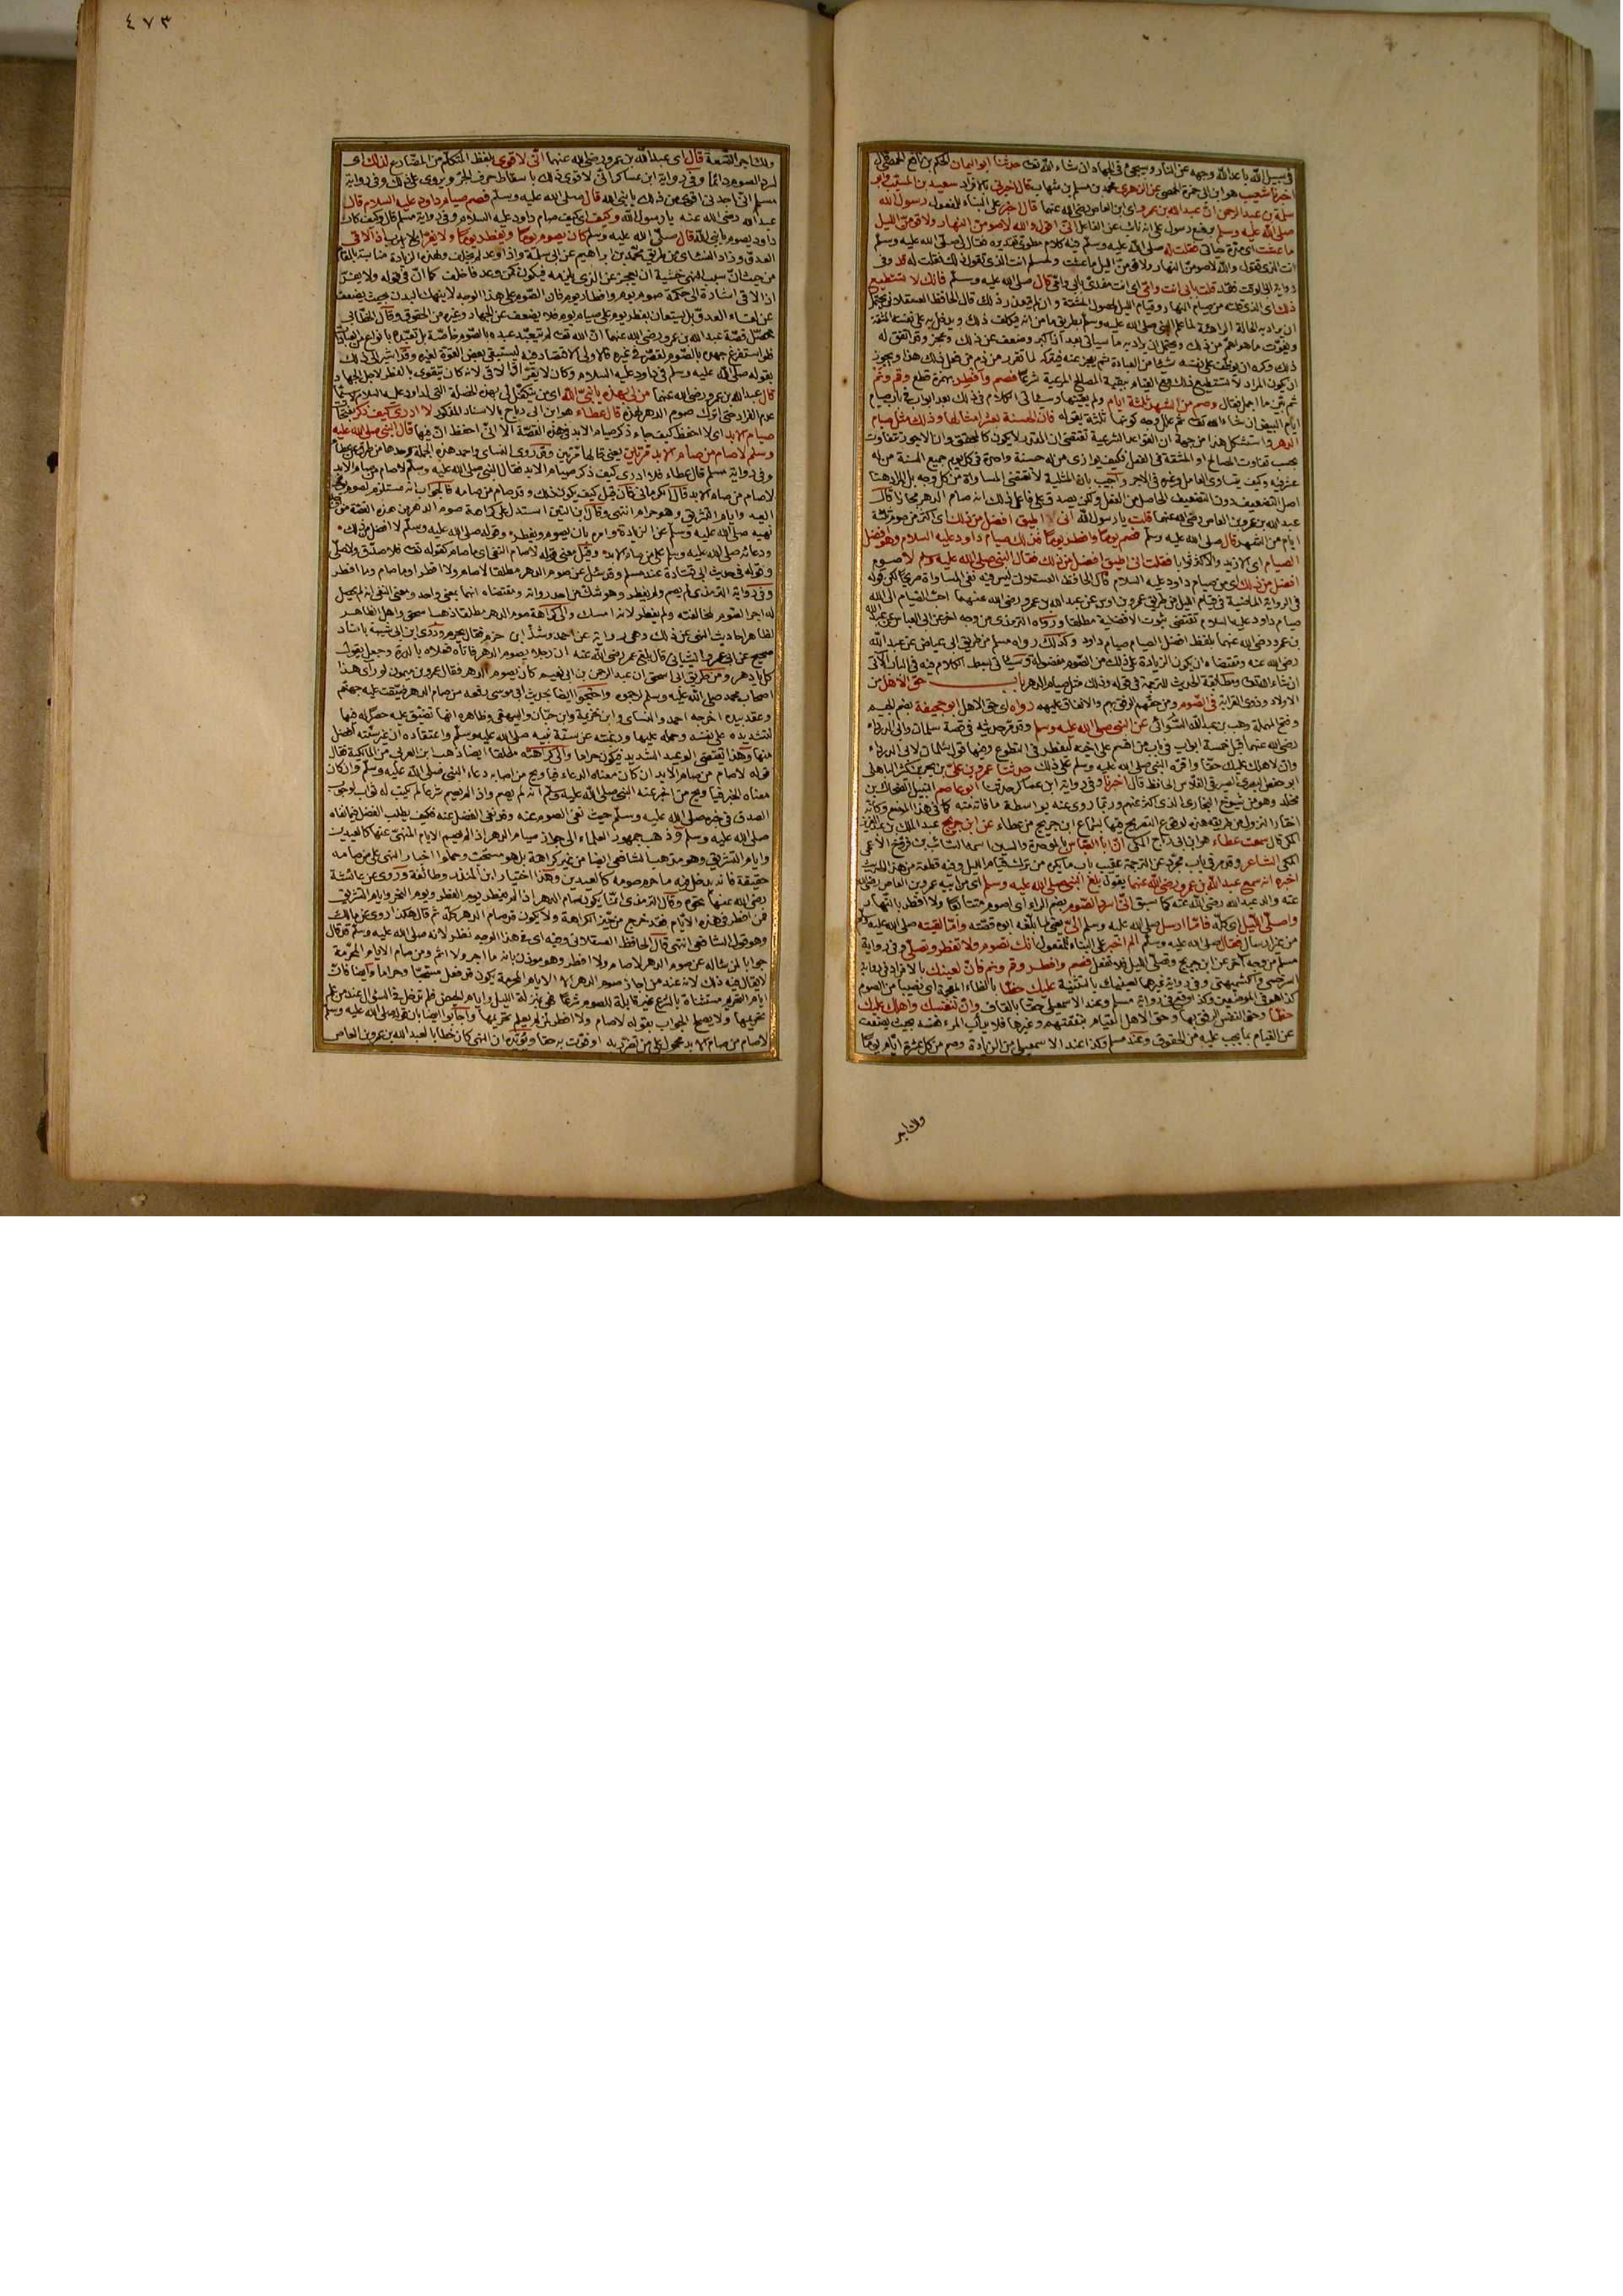 في سبيل الله باعد الله وجهه عن النار وسيجيء في الجهاد ان شاء الله تعالى حدثنا ابو اليمان الحكم بن نافع الحمصي قال
اخبرنا شعيب هو ابن ابي حمزة الحمصي عن الزهري محمد بن مسلم بن شهاب قال اخبرني بالافراد سعيد بن المسيب وابو
سلمة بن عبد الرحمن ان عبد الله بن عمرو اي ابن العاص رضي الله عنهما قال اخبر على البناء للمفعول رسول الله
صلى الله عليه وسلم برفع رسول على انه نائب عن الفاعل اني اقول والله لاصومن النهار ولاقومن الليل
ما عشت اي مدة حياتي فقلت له صلى الله عليه وسلم فيه كلام مطوي تقديره فقال لي صلى الله عليه وسلم
انت الذي تقول والله لاصومن النهار ولاقومن الليل ما عشت ولمسلم انت الذي تقول ذلك فقلت له قد وفي
قلته بابي انت وامي اي انت مفدى بابي وامي قال صلى الله عليه وسلم فانك لا تستطيع
ذلك اي الذي قلته من صيام النهار وقيام الليل لحصول المشقة وان لم يتعذر ذلك قال الحافظ العسقلاني يحتمل
ان يراد به الحالة الراهنة لما علم النبي صلى الله عليه وسلم بطريق ما من انه يتكلف ذلك ويدخل به على نفسه المشقة
ويفوت ما هو اهم من ذلك ويحتمل ان يراد به ما سيأتي بعد اذا كبر وضعف عن ذلك وعجز وقد اتفق له
ذلك وكره ان يوظف على نفسه شيئا من العبادة ثم يعجز عنه فيتركه لما تقرر من ذم من فعل ذلك هذا ويجوز
ان يكون المراد لا تستطيع ذلك مع القيام ببقية المصالح المرعية شرعا فصم وافطر بهمزة قطع وقم ونم
ثم بين ما اجمل فقال وصم من الشهر ثلثة ايام ولم يعينها وسيأتي الكلام في ذلك بعد ابواب في باب صيام
ايام البيض ان شاء الله تعالى ثم علل وجه كونها ثلثة بقوله فان الحسنة بعشر امثالها وذلك مثل صيام
الدهر واستشكل هذا من جهة ان القواعد الشرعية تقتضي ان المقدر لا يكون كالمحقق وان الاجور تتفاوت
بحسب تفاوت المصالح او المشقة في الفعل فكيف يوازي من له حسنة واحدة في كل يوم جميع السنة من له
عشر فيه وكيف يتساوى العامل وغيره في الاجر واجيب بان المثلية لا تقتضي المساواة من كل وجه بل المراد هنا
اصل التضعيف دون التضعيف الحاصل من الفعل ولكن يصدق على فاعل ذلك انه صام الدهر مجازا قال
عبد الله بن عمرو بن العاص رضي الله عنهما قلت يا رسول الله اني اطيق افضل من ذلك اي اكثر من صوم ثلثة
ايام من الشهر قال صلى الله عليه وسلم فصم يوما وافطر يوما فذلك صيام داود عليه السلام وهو افضل
الصيام اي الازيد والاكثر ثوابا فقلت اني اطيق افضل من ذلك فقال النبي صلى الله عليه وسلم لا صوم
افضل من ذلك اي من صيام داود عليه السلام قال الحافظ العسقلاني ليس فيه نفي المساواة صريحا لكن قوله
في الرواية الماضية في قيام الليل من طريق عمرو بن اوس عن عبد الله بن عمرو رضي الله عنهما احب القيام الى الله
صيام داود عليه السلام تقتضي ثبوت الافضلية مطلقا ورواه الترمذي من وجه اخر عن ابي العباس عن عبد الله
بن عمرو رضي الله عنهما بلفظ افضل الصيام صيام داود وكذلك رواه مسلم من طريق ابي عياض عن عبد الله
رضي الله عنه ومقتضاه ان يكون الزيادة على ذلك من الصوم مفضولة وسيأتي بسط الكلام فيه في الباب الآتي
ان شاء الله تعالى ومطابقة الحديث للترجمة في قوله وذلك مثل صيام الدهر باب حق الاهل من
الاولاد وذوي القرابة في الصوم ومن حقهم الرفق بهم والانفاق عليهم رواه اي حق الاهل ابو جحيفة بضم الجيم
وفتح المهملة وهب بن عبد الله السوائي عن النبي صلى الله عليه وسلم وقد مر حديثه في قصة سلمان وابي الدرداء
رضي الله عنهما قبل خمسة ابواب في باب من اقسم على اخيه ليفطر في التطوع وفيها قول سلمان لابي الدرداء
وان لاهلك عليك حقا واقره النبي صلى الله عليه وسلم على ذلك حدثنا عمرو بن علي بن بحر بن كنيز الباهلي
ابو حفص البصري الصيرفي الفلاس الحافظ قال اخبرنا وفي رواية ابن عساكر حدثنا ابو عاصم النبيل الضحاك بن
مخلد وهو من شيوخ البخاري الذي اكثر عنهم وربما روى عنه بواسطة ما فاته منه كما في هذا الموضع وكأنه
اختار النزول من طريقه هذه لوقوع التصريح فيها بسماع ابن جريج من عطاء عن ابن جريج عبد الملك بن عبد العزيز
المكي قال سمعت عطاء هو ابن ابي رباح المكي ان ابا العباس بالموحدة والسين اسمه السائب بن فروخ الاعمى
المكي الشاعر وقد مر في باب مجرد عن الترجمة عقيب باب ما يكره من ترك قيام الليل وفيه قطعة من هذا الحديث
اخبره انه سمع عبد الله بن عمرو رضي الله عنهما يقول بلغ النبي صلى الله عليه وسلم اي من ابيه عمرو بن العاص رضي الله
عنه والد عبد الله رضي الله عنه كما سبق اني اسرد الصوم بضم الراء اي اصوم متتابعا ولا افطر بالنهار
واصلي الليل اي كله فاما ارسل صلى الله عليه وسلم الي يعني لما بلغه ابوه قصته واما لقيته صلى الله عليه وسلم
من غير ارسال فقال صلى الله عليه وسلم الم اخبر على البناء للمفعول انك تصوم ولا تفطر وتصلي وفي رواية
مسلم من وجه آخر عن ابن جريج وتصلي الليل فلا تفعل فصم وافطر وقم ونم فان لعينك بالافراد في رواية
السرخسي والكشميهني وفي رواية غيرهما لعينيك بالتثنية عليك حظا بالظاء المعجمة اي نصيبا من الصوم
كذا هو في الموضعين وكذا وقع في رواية مسلم وعند الاسمعيلي حقا بالقاف وان لنفسك واهلك عليك
حظا وحق النفس الرفق بها وحق الاهل القيام بنفقتهم وغيرها فلا يدأب المرء نفسه بحيث يضعف
عن القيام بما يجب عليه من الحقوق وعند مسلم وكذا عند الاسمعيلي من الزيادة وصم من كل عشرة ايام يوما
ولك اجر
٤٧٣
ولك اجر التسعة قال اي عبد الله بن عمرو رضي الله عنهما اني لاقوى بلفظ المتكلم من المضارع لذلك اي
لسرد الصوم دائما وفي رواية ابن عساكر اني لاقوى ذلك باسقاط حرف الجر ويروى على ذلك وفي رواية
مسلم اني اجدني اقوى من ذلك يا نبي الله قال صلى الله عليه وسلم فصم صيام داود عليه السلام قال
عبد الله رضي الله عنه يا رسول الله وكيف اي كيف صيام داود عليه السلام وفي رواية مسلم قال وكيف كان
داود يصوم يا نبي الله قال صلى الله عليه وسلم كان يصوم يوما ويفطر يوما ولا يفر اذا لاقى
العدو وزاد النسائي من طريق محمد بن ابراهيم عن ابي سلمة واذا وعد لم يخلف ولهذه الزيادة مناسبة بالمقام
من حيث ان سبب النهي خشية ان يعجز عن الذي يلزمه فيكون كمن وعد فاخلف كما ان في قوله ولا يفر
اذا لاقى اشارة الى حكمة صوم يوم وافطار يوم فان الصوم على هذا الوجه لا ينهك البدن بحيث يضعف
عن لقاء العدو بل يستعان بفطر يوم على صيام يوم فلا يضعف عن الجهاد وغيره من الحقوق وقال الخطابي
محصل قصة عبد الله بن عمرو رضي الله عنهما ان الله تعالى لم يتعبد عبده بالصوم خاصة بل تعبده بانواع من العبادات
فلو استفرغ جهده بالصوم لقصر في غيره فالاولى الاقتصاد فيه ليستبقي بعض القوة لغيره وقد اشير الى ذلك
بقوله صلى الله عليه وسلم في داود عليه السلام وكان لا يفر اذا لاقى لانه كان يتقوى بالفطر لاجل الجهاد
قال عبد الله بن عمرو رضي الله عنهما من لي بهذه يا نبي الله اي من يتكفل لي بهذه الخصلة التي لداود عليه السلام لا سيما
عدم الفرار قال عطاء هو ابن ابي رباح بالاسناد المذكور لا ادري كيف ذكر
صيام الابد اي لا احفظ كيف جاء ذكر صيام الابد في هذه القصة الا اني احفظ ان فيها قال النبي صلى الله عليه
وسلم لا صام من صام الابد مرتين يعني قالها مرتين وقد روى النسائي واحمد هذه الجملة وحدها من طريق عطاء
وفي رواية مسلم قال عطاء فلا ادري كيف ذكر صيام الابد فقال النبي صلى الله عليه وسلم لا صام من صام الابد
لا صام من صام الابد قال الكرماني فان قيل كيف يكون ذلك وقد صام من صامه فالجواب انه مستلزم لصوم يوم
العيد وايام التشريق وهو حرام انتهى وقال ابن التين استدل على كراهة صوم الدهر من هذه القصة من
نهيه صلى الله عليه وسلم عن الزيادة وامره بان يصوم ويفطر وقوله صلى الله عليه وسلم لا افضل من ذلك
ودعائه صلى الله عليه وسلم على من صام الابد وقيل معنى قوله لا صام النفي اي ما صام كقوله تعالى فلا صدق ولا صلى
وقوله في حديث ابي قتادة عند مسلم وقد سئل عن صوم الدهر مطلقا لا صام ولا افطر او ما صام وما افطر
وفي رواية الترمذي لم يصم ولم يفطر وهو شك من احد رواته ومقتضاه انهما بمعنى واحد ومعنى النفي انه لم يحصل
له اجر الصوم لمخالفته ولم يفطر لانه امسك والى كراهة صوم الدهر مطلقا ذهب اسحق واهل الظاهر
لظاهر احاديث النهي عن ذلك وهي رواية عن احمد وشذ ابن حزم فقال يحرم وروى ابن ابي شيبة باسناد
صحيح عن ابي عمرو الشيباني قال بلغ عمر رضي الله عنه ان رجلا يصوم الدهر فاتاه فعلاه بالدرة وجعل يقول
كل يا دهر ومن طريق ابي اسحق ان عبد الرحمن بن ابي نعيم كان يصوم الدهر فقال عمرو بن ميمون لو رأى هذا
اصحاب محمد صلى الله عليه وسلم لرجموه واحتجوا ايضا بحديث ابي موسى رفعه من صام الدهر ضيقت عليه جهنم
وعقد بيده اخرجه احمد والنسائي وابن خزيمة وابن حبان والبيهقي وظاهره انها تضيق عليه حصرا له فيها
لتشديده على نفسه وحمله عليها ورغبته عن سنة نبيه صلى الله عليه وسلم واعتقاده ان غير سنته افضل
منها وهذا يقتضي الوعيد الشديد فيكون حراما والى كراهته مطلقا ايضا ذهب ابن العربي من المالكية فقال
قوله لا صام من صام الابد ان كان معناه الدعاء فيا ويح من اصابه دعاء النبي صلى الله عليه وسلم وان كان
معناه الخبر فيا ويح من اخبر عنه النبي صلى الله عليه وسلم انه لم يصم واذا لم يصم شرعا لم يكتب له ثواب لوجوب
الصدق في خبره صلى الله عليه وسلم حيث نفى الصوم عنه وقد نفى الفضل عنه فكيف يطلب الفضل فيما نفاه
صلى الله عليه وسلم وذهب جمهور العلماء الى جواز صيام الدهر اذا لم يصم الايام المنهي عنها كالعيدين
وايام التشريق وهو مذهب الشافعي ايضا من غير كراهة بل هو مستحب وحملوا اخبار النهي على من صامه
حقيقة فانه يدخل فيه ما حرم صومه كالعيدين وهذا اختيار ابن المنذر وطائفة وروي عن عائشة
رضي الله عنها نحوه وقال الترمذي انما يكون صام الدهر اذا لم يفطر يوم الفطر ويوم النحر وايام التشريق
فمن افطر في هذه الايام فقد خرج من حيز الكراهة ولا يكون قد صام الدهر كله ثم قال هكذا روي عن مالك
وهو قول الشافعي انتهى قال الحافظ العسقلاني وفيه اي في هذا التوجيه نظر لانه صلى الله عليه وسلم قد قال
جوابا لمن سأله عن صوم الدهر لا صام ولا افطر وهو مؤذن بانه ما اجر ولا اثم ومن صام الايام المحرمة
لا يقال فيه ذلك لانه عند من اجاز صوم الدهر الا الايام المحرمة يكون قد فعل مستحبا وحراما وايضا فان
ايام التحريم مستثناة بالشرع غير قابلة للصوم شرعا فهي بمنزلة الليل وايام الحيض فلم تدخل في السؤال عند من علم
تحريمها ولا يصلح الجواب بقوله لا صام ولا افطر لمن لم يعلم تحريمها واجابوا ايضا بان قوله صلى الله عليه وسلم
لا صام من صام الابد محمول على من تضرر به او فوت به حقا ويؤيده ان النهي كان خطابا لعبد الله بن عمرو بن العاص